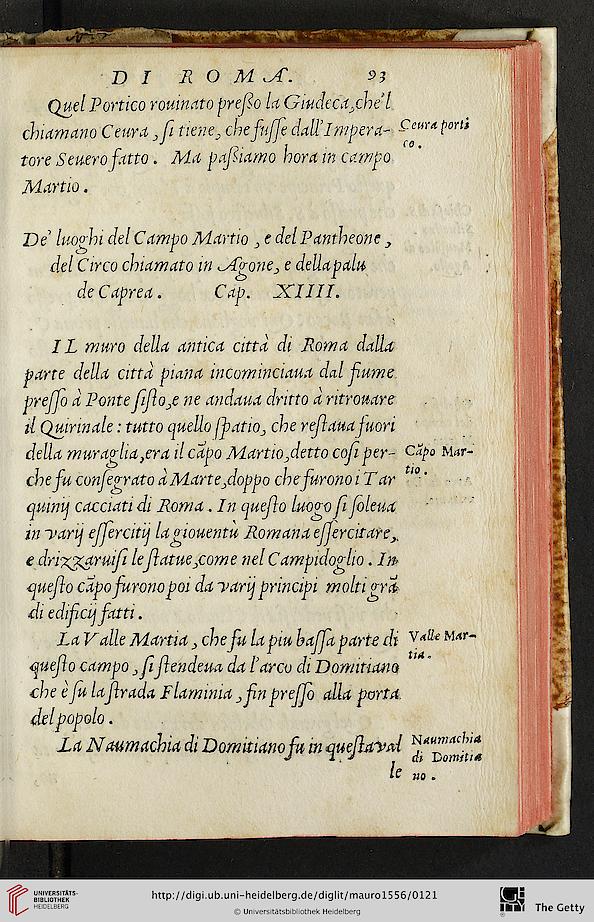 DI ROMA. 93
Quel Portico rouinato preſſo la Giudeca, che'l
chiamano Ceura, ſi tiene, che fuſſe dall'Impera-
tore Seuero fatto. Ma paſsiamo hora in campo
Martio.
Ceura porti
co.
De' luoghi del Campo Martio, e del Pantheone,
del Circo chiamato in Agone, e della palu
de Caprea. Cap. XIIII.
IL muro della antica città di Roma dalla
parte della città piana incominciaua dal fiume
preſſo à Ponte ſiſto, e ne andaua dritto à ritrouare
il Quirinale: tutto quello ſpatio, che reſtaua fuori
della muraglia, era il cãpo Martio, detto coſi per-
che fu conſegrato à Marte, doppo che furono i Tar
quinij cacciati di Roma. In queſto luogo ſi ſoleua
in varij eſſercitij la giouentù Romana eſſercitare,
e drizzaruiſi le ſtatue, come nel Campidoglio. In
queſto cãpo furono poi da varij principi molti grã
di edificij fatti.
Cãpo Mar-
tio.
La Valle Martia, che fu la piu baſſa parte di
queſto campo, ſi ſtendeua da l'arco di Domitiano
che è ſu la ſtrada Flaminia, ſin preſſo alla porta
del popolo.
Valle Mar-
tia.
La Naumachia di Domitiano fu in queſta val
le
Naumachia
di Domitia
no.
UNIVERSITÄTS-
BIBLIOTHEK
HEIDELBERG
http://digi.ub.uni-heidelberg.de/diglit/mauro1556/0121
© Universitätsbibliothek Heidelberg
The Getty